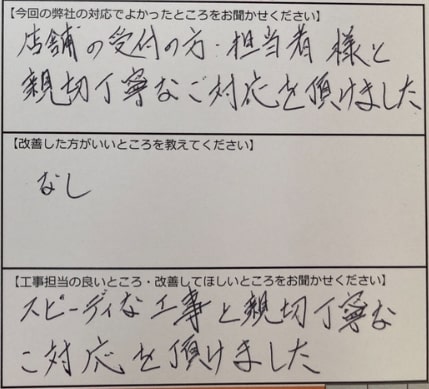 【今回の弊社の対応でよかったところをお聞かせください】
店舗の受付の方・担当者様と
親切丁寧なご対応を頂けました
【改善した方がいいところを教えてください】
なし
【工事担当の良いところ・改善してほしいところをお聞かせください】
スピーディな工事と親切丁寧な
ご対応を頂けました